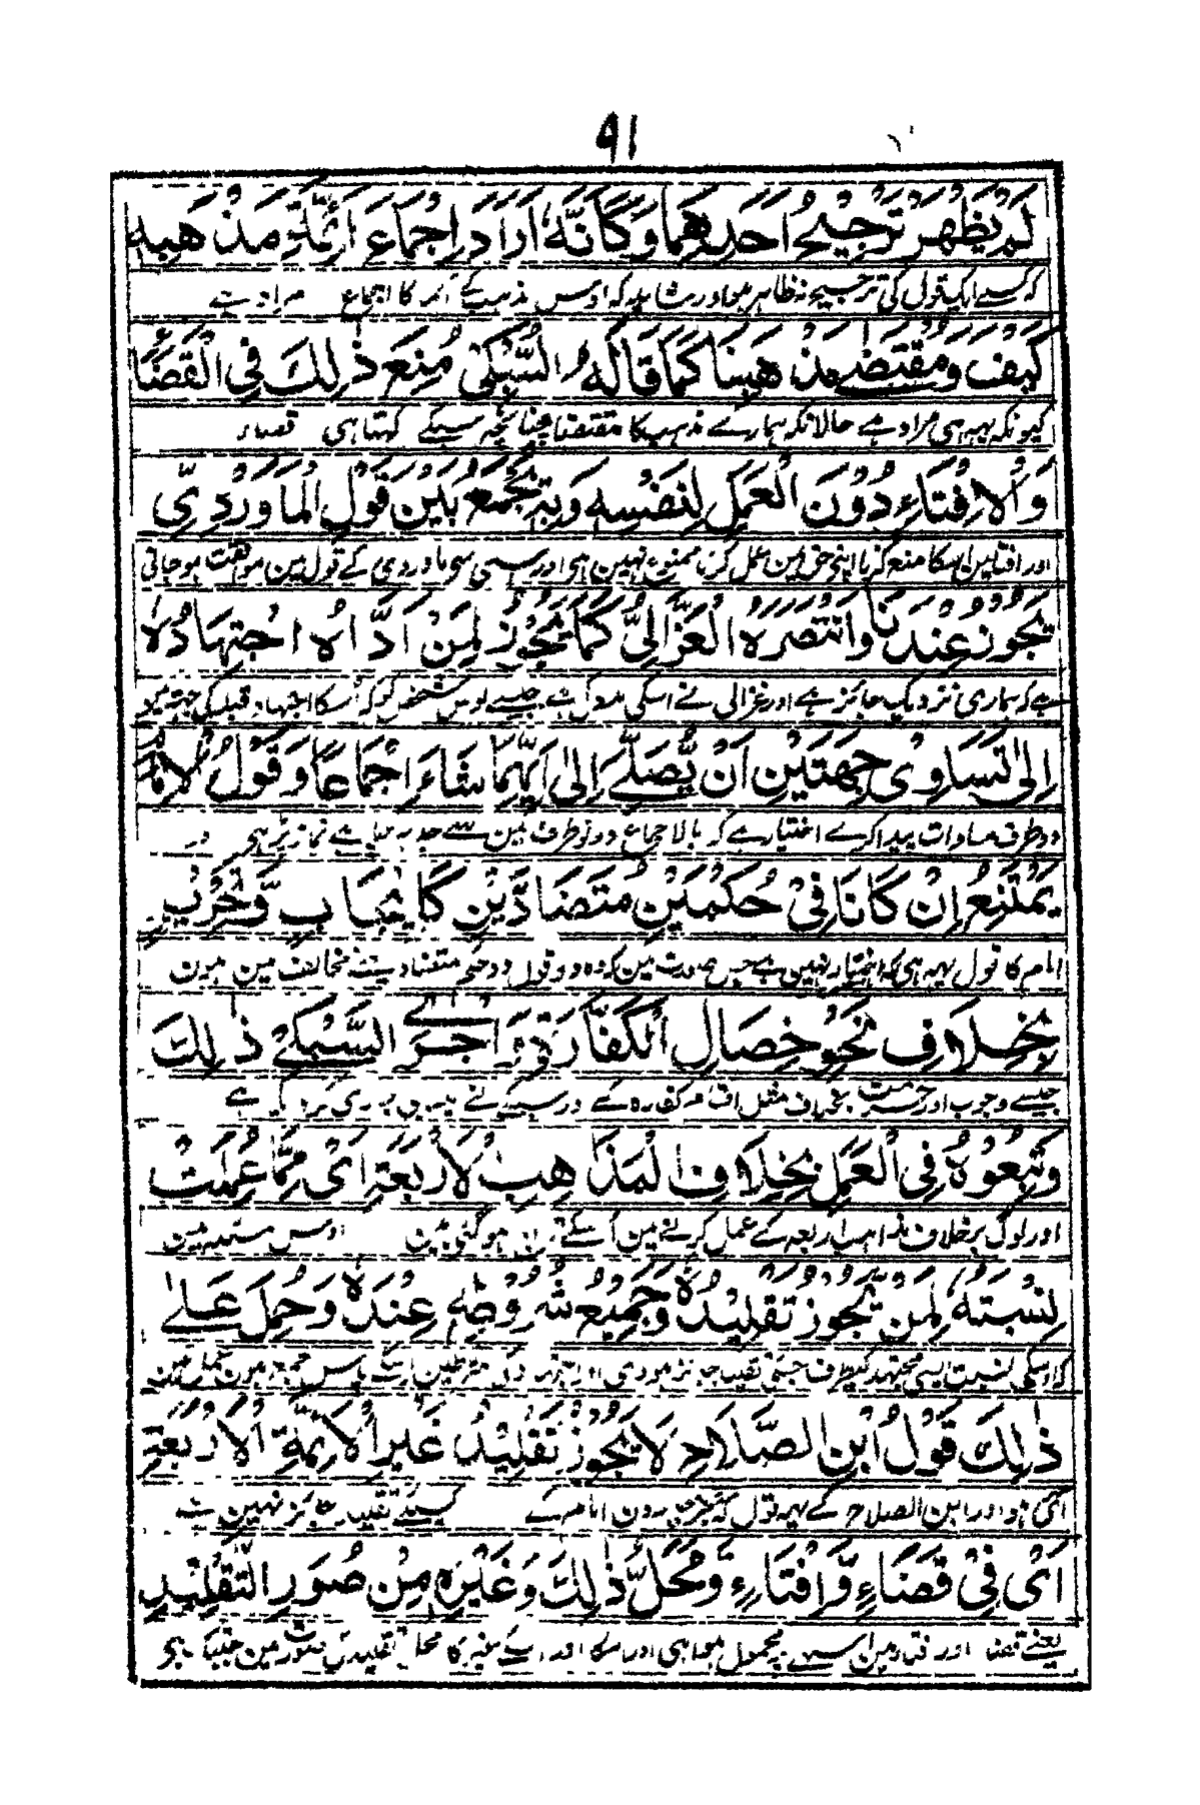 ٩١
لَمْ يَظْهَرْ تَرْجِيْحُ اَحَدِهِمَا وَكَاَنَّهُ اَرَادَ اِجْمَاعَ اَئِمَّةِ مَذْهَبِهٖ
کہ کسے ایک قول کی ترجیح نظاہر ہو اور شاید کہ اوس مذہب کے ائمہ کا اجماع مراد ہے
كَيْفَ وَمُقْتَضٰے مَذْهَبِنَا كَمَا قَالَهُ السُّبْكِیُّ مُنِعَ ذٰلِكَ فِی الْقَضَاءِ
کیونکہ یہہ ہی مراد ہے حالانکہ ہمارے مذہب کا مقتضا چنانچہ سبکے کہتا ہی قضاء
وَالْاِفْتَاءِ دُوْنَ الْعَمَلِ لِنَفْسِهٖ وَبِهٖ يُجْمَعُ بَيْنَ قَوْلِ الْمَاوَرْدِیِّ
اور افتا مین اسکا منع کرنا اپنی حق مین عمل کرنا ممنوع نہین ہی اور اسی سی ماوردی کے قول مین موافقت ہو جاتی
يَجُوْزُ عِنْدَنَا وَانْتَصَرَهُ الْغَزَّالِیُّ كَمَا يَجُوْزُ لِمَنْ اَدَّاهُ اجْتِهَادُهٗ
ہے کہ ہماری نزدیک جائز ہے اور غزالی نے اسکی مدد کی ہے جیسے اوس شخص کو کہ اُسکا اجتہاد قبلہ کی
اِلٰى تَسَاوِیْ جِهَتَيْنِ اَنْ يُّصَلِّے اِلٰى اَيِّهِمَا شَاءَ اِجْمَاعًا وَقَوْلُ الْاِمَامِ
دو طرف مساوات پیدا کرے اختیار ہے کہ بالاجماع دونو طرف مین سے جدہر چاہے نماز پڑہی اور
يَمْتَنِعُ اِنْ كَانَا فِیْ حُكْمَيْنِ مُتَضَادَّيْنِ كَاِيْجَابٍ وَّتَحْرِيْمٍ
امام کا قول یہہ ہی کہ اختیار نہین ہے جس صورت مین کہ وہ دو قول دو حکم متضاد مخالف مین ہون
بِخِلَافِ نَحْوِ خِصَالِ الْكَفَّارَةِ وَاَجْرَے السُّبْكِیُّ ذٰلِكَ
جیسے وجوب اور حرمت بخلاف مثل اقسام کفارہ کے اور سبکی نے
وَتَبِعُوْهُ فِی الْعَمَلِ بِخِلَافِ الْمَذَاهِبِ الْاَرْبَعَةِ اَیْ مِمَّا عُلِمَتْ
اور لوگ برخلاف مذاہب اربعہ کے عمل کرنے مین اُسکے تابع ہو گئی ہین اوس مسئلہ مین
نِسْبَتُهٗ لِمَنْ يَّجُوْزُ تَقْلِيْدُهٗ وَجَمِيْعُ شُرُوْطِهٖ عِنْدَهٗ وَحُمِلَ عَلٰى
کہ اسکی نسبت ایسی مجتہد کیطرف جسکی تقلید جائز ہو
ذٰلِكَ قَوْلُ ابْنِ الصَّلَاحِ لَا يَجُوْزُ تَقْلِيْدُ غَيْرِ الْاَئِمَّةِ الْاَرْبَعَةِ
اور ابن الصلاح کے یہہ قول کہ بجز چارون امام کے کسیکے تقلید جائز نہین ہے
اَیْ فِیْ قَضَاءٍ وَّاِفْتَاءٍ وَمَحَلُّ ذٰلِكَ وَغَيْرِهٖ مِنْ صُوَرِ التَّقْلِيْدِ
یعنے قضا اور فتاوی مین اسپر محمول ہوا ہی اور اسکا اور اسکے غیر کا محل تقلید کی صورت مین جب تک ہے